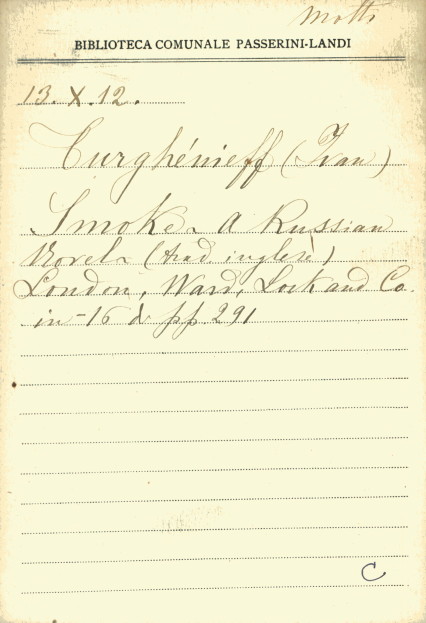 Motti
BIBLIOTECA COMUNALE PASSERINI-LANDI
13. X. 12.
Turghénieff (Ivan)
Smoke - A Russian
Novel - (trad. inglese)
London, Ward, Lock and Co.
in-16 di pp. 291
C